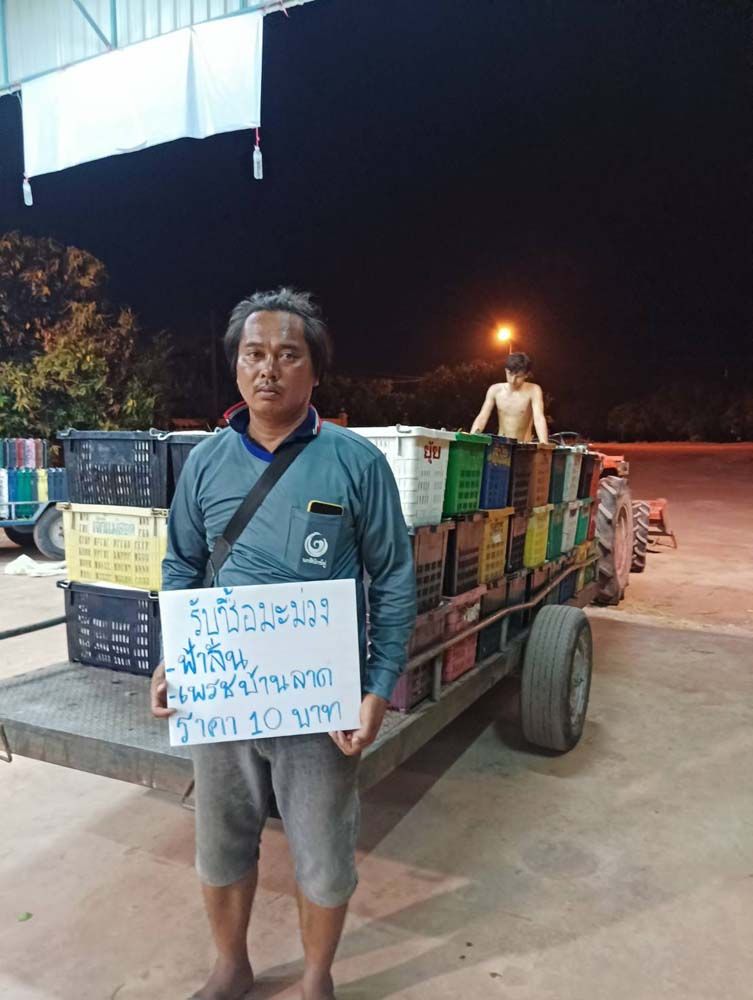 รับซื้อมะม่วง
-ฟ้าลั่น
-เพชรบ้านลาด
ราคา 10 บาท
ยุ้ย